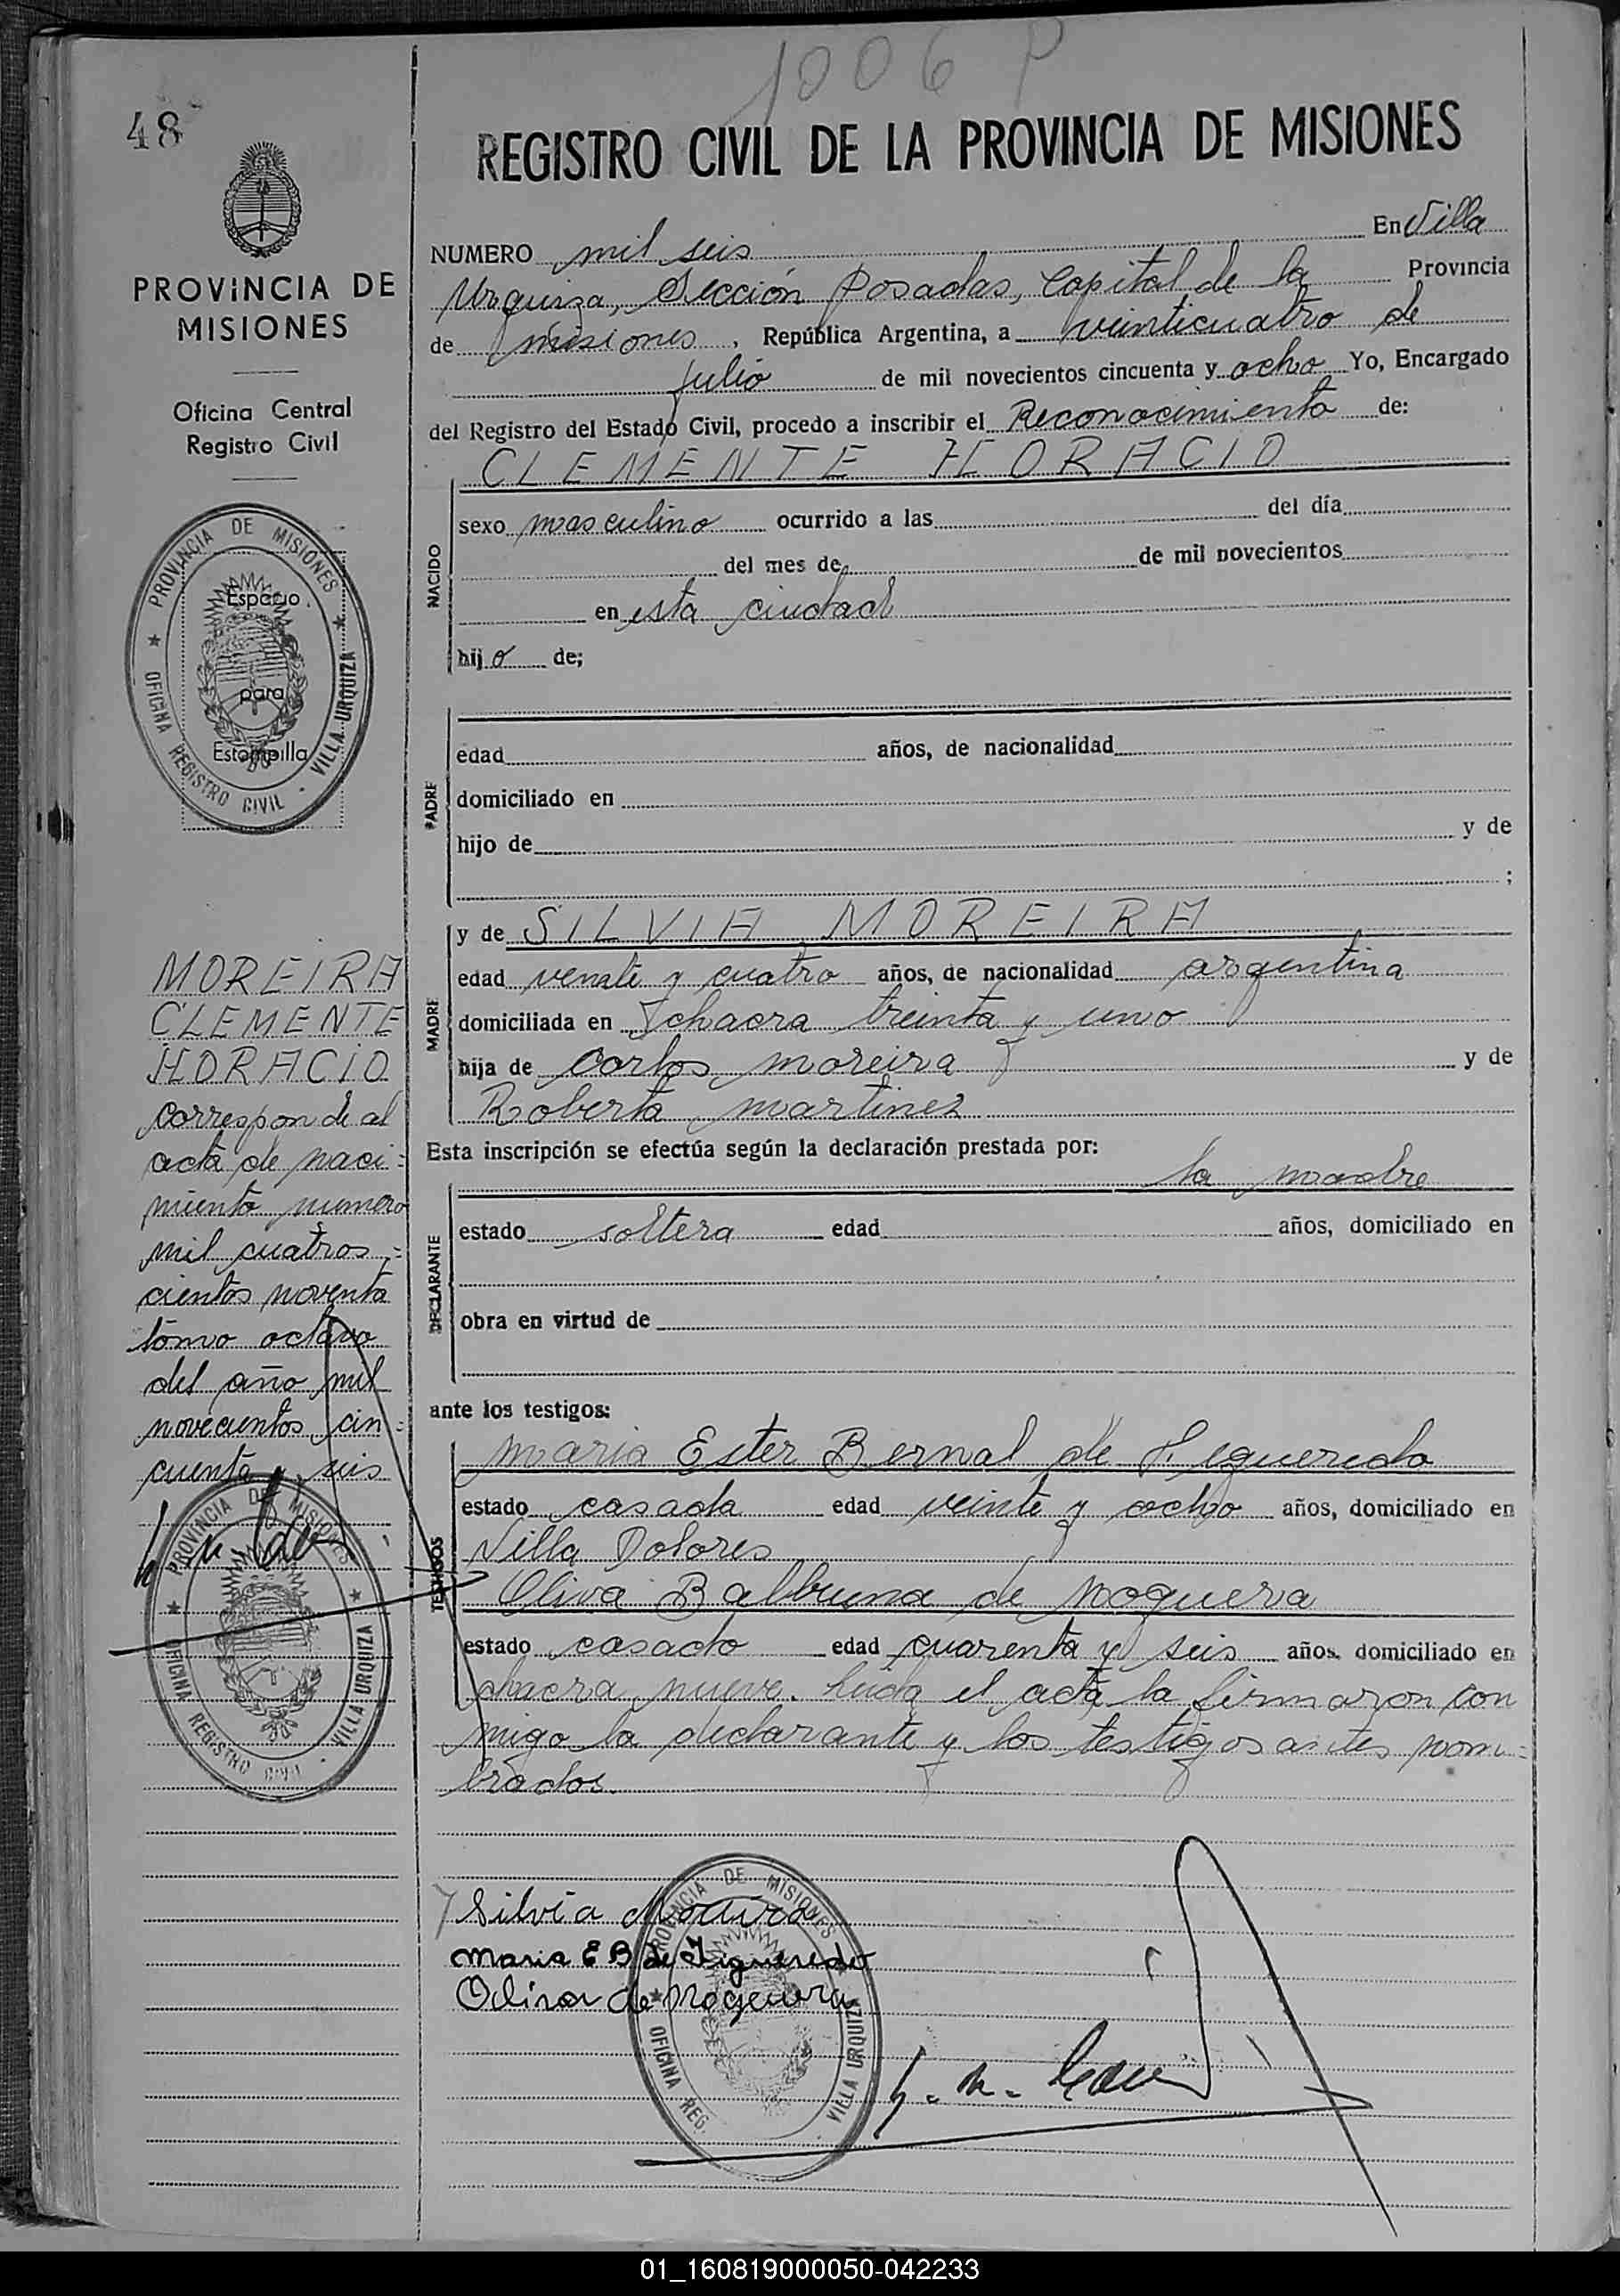 1006 P
48
REGISTRO CIVIL DE LA PROVINCIA DE MISIONES
PROVINCIA DE
MISIONES
Oficina Central
Registro Civil
PROVINCIA DE MISIONES
OFICINA REGISTRO CIVIL - VILLA URQUIZA
Espacio
para
Estampilla
MOREIRA
CLEMENTE
HORACIO
correspon de al
acta de naci=
miento numero
mil cuatros=
cientos noventa
tomo octavo
del año mil
novecientos cin=
cuenta y seis
PROVINCIA DE MISIONES
OFICINA REGISTRO CIVIL - VILLA URQUIZA
NUMERO mil seis En Villa
Urquiza, Sección Posadas, Capital de la Provincia
de misiones, República Argentina, a veinticuatro de
julio de mil novecientos cincuenta y ocho Yo, Encargado
del Registro del Estado Civil, procedo a inscribir el Reconocimiento de:
CLEMENTE HORACIO
NACIDO
sexo masculino ocurrido a las del día
del mes de de mil novecientos
en esta ciudad
hijo de;
PADRE
edad años, de nacionalidad
domiciliado en
hijo de y de
;
MADRE
y de SILVIA MOREIRA
edad veinte y cuatro años, de nacionalidad argentina
domiciliada en chacra treinta y uno
hija de Carlos moreira y de
Roberta martinez
Esta inscripción se efectúa según la declaración prestada por:
la madre
DECLARANTE
estado soltera edad años, domiciliado en
obra en virtud de
ante los testigos:
TESTIGOS
maria Ester Bernal de Figueredo
estado casada edad veinte y ocho años, domiciliado en
Villa Dolores
Oliva Balbuena de noguera
estado casado edad cuarenta y seis años, domiciliado en
chacra nueve. Leida el acta la firmaron con
migo la declarante y los testigos antes nom=
brados.
Silvia Moreira
maria E B de Figueredo
Oliva de Noguera
PROVINCIA DE MISIONES
OFICINA REG. VILLA URQUIZA
01_160819000050-042233